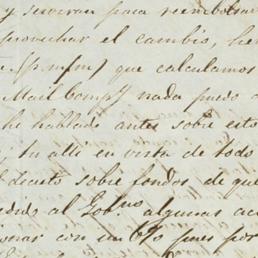 y serviran para reembolsar
aprovechar el cambio, he
que calculamos
Mail Compy nada puedo
he hablado antes sobre esto
tu alli en vista de todo
decreto sobre fondos de que
al Gobno algunas
con un 6% pues por